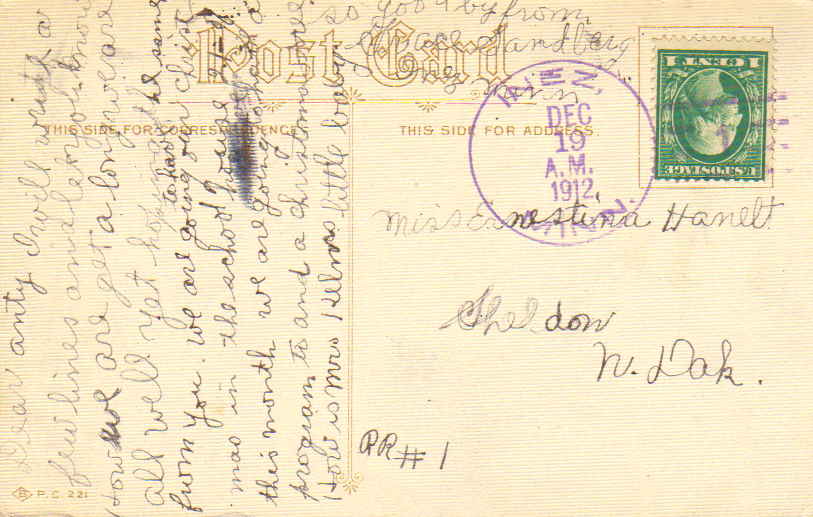 Post Card
THIS SIDE FOR CORRESPONDENCE.
THIS SIDE FOR ADDRESS.
Dear anty I will write a
few lines and let you know
How we are get a long we are
all well yet hope the same
from you. we are going to have our Christ
mas in the school house 21
this month we are going to have a
program to and a christmas tree
How is Mrs Helms little baby
so good by from
Sandberg
Minn
DEC
19
A.M.
1912
MINN.
U.S. POSTAGE
1 CENT 1
Miss Ernestina Hanelt
Sheldon
N. Dak.
RR # 1
P.C. 221